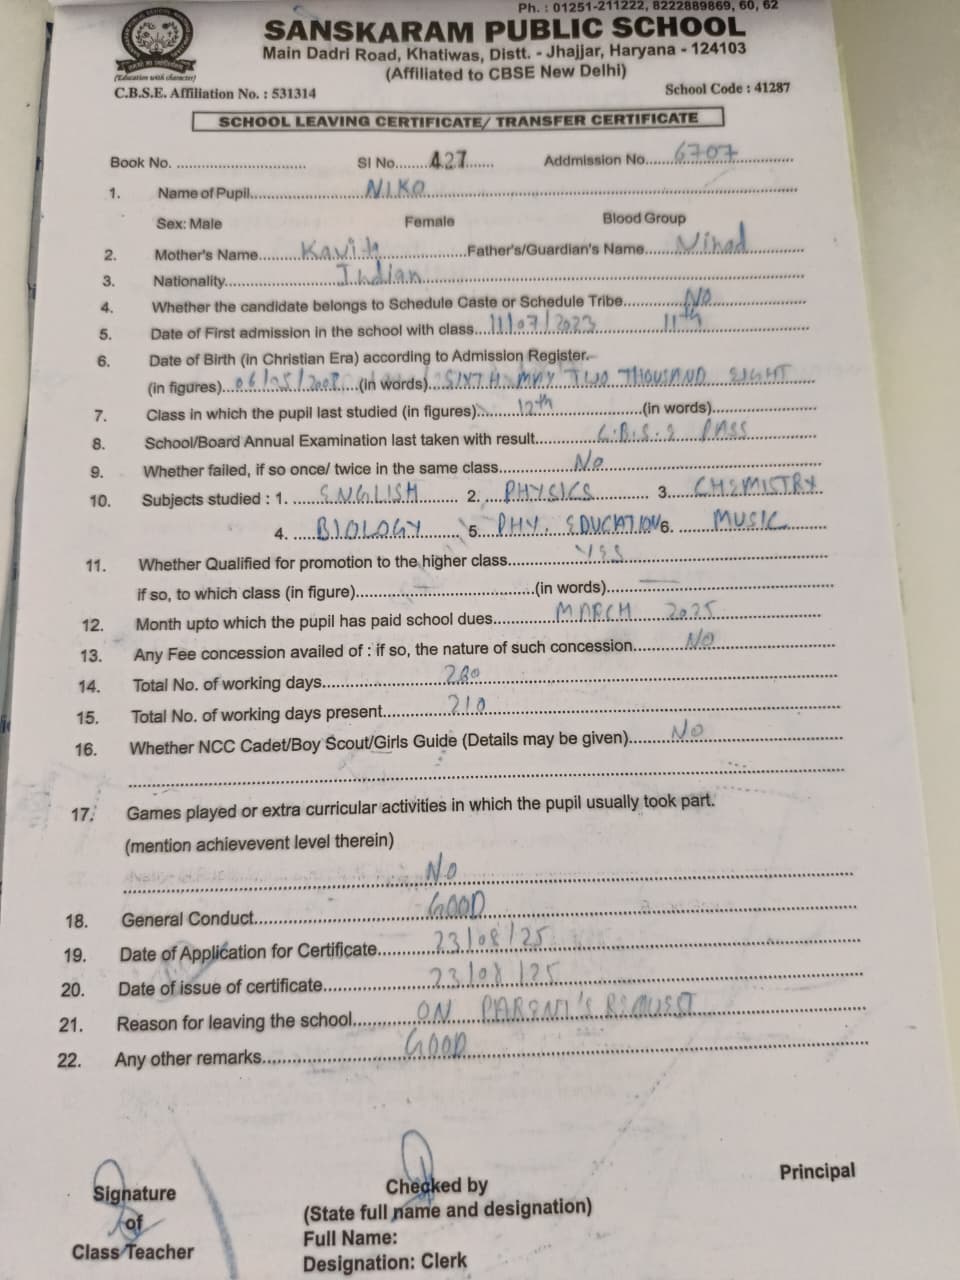 Ph. : 01251-211222, 8222889869, 60, 62
SANSKARAM PUBLIC SCHOOL
Main Dadri Road, Khatiwas, Distt. - Jhajjar, Haryana - 124103
(Affiliated to CBSE New Delhi)
(Education with character)
C.B.S.E. Affiliation No. : 531314 School Code : 41287
SCHOOL LEAVING CERTIFICATE/ TRANSFER CERTIFICATE
Book No. .............................. Sl No.......427...... Addmission No......6707..............
1. Name of Pupil..........................NIKO..........................
Sex: Male Female Blood Group
2. Mother's Name.........Kavita....................Father's/Guardian's Name......Vinod............
3. Nationality..........................Indian..........................
4. Whether the candidate belongs to Schedule Caste or Schedule Tribe..............No..................
5. Date of First admission in the school with class....11/07/2023 11th..................
6. Date of Birth (in Christian Era) according to Admission Register.
(in figures)...06/05/2008....(in words)....SIXTH MAY TWO THOUSAND EIGHT
7. Class in which the pupil last studied (in figures)..........12th....................(in words)......................
8. School/Board Annual Examination last taken with result..............C.B.S.E PASS..............
9. Whether failed, if so once/ twice in the same class................No......................
10. Subjects studied : 1. .....ENGLISH........ 2. ....PHYSICS............ 3.....CHEMISTRY.
4. .....BIOLOGY........ 5...PHY. EDUCATION 6. .........MUSIC.........
11. Whether Qualified for promotion to the higher class................YES......................
if so, to which class (in figure)....................................(in words)..............................
12. Month upto which the pupil has paid school dues..............MARCH 2025..................
13. Any Fee concession availed of : if so, the nature of such concession.............NO..................
14. Total No. of working days..........................280..........................
15. Total No. of working days present................210..........................
16. Whether NCC Cadet/Boy Scout/Girls Guide (Details may be given)..........No..................
17. Games played or extra curricular activities in which the pupil usually took part.
(mention achievevent level therein)
No
18. General Conduct..................................GOOD..................................
19. Date of Application for Certificate............23/08/25..................
20. Date of issue of certificate......................23/08/25..................
21. Reason for leaving the school..............ON PARENT'S REQUEST..................
22. Any other remarks............................GOOD..................................
Signature
of
Class Teacher
Checked by
(State full name and designation)
Full Name:
Designation: Clerk
Principal